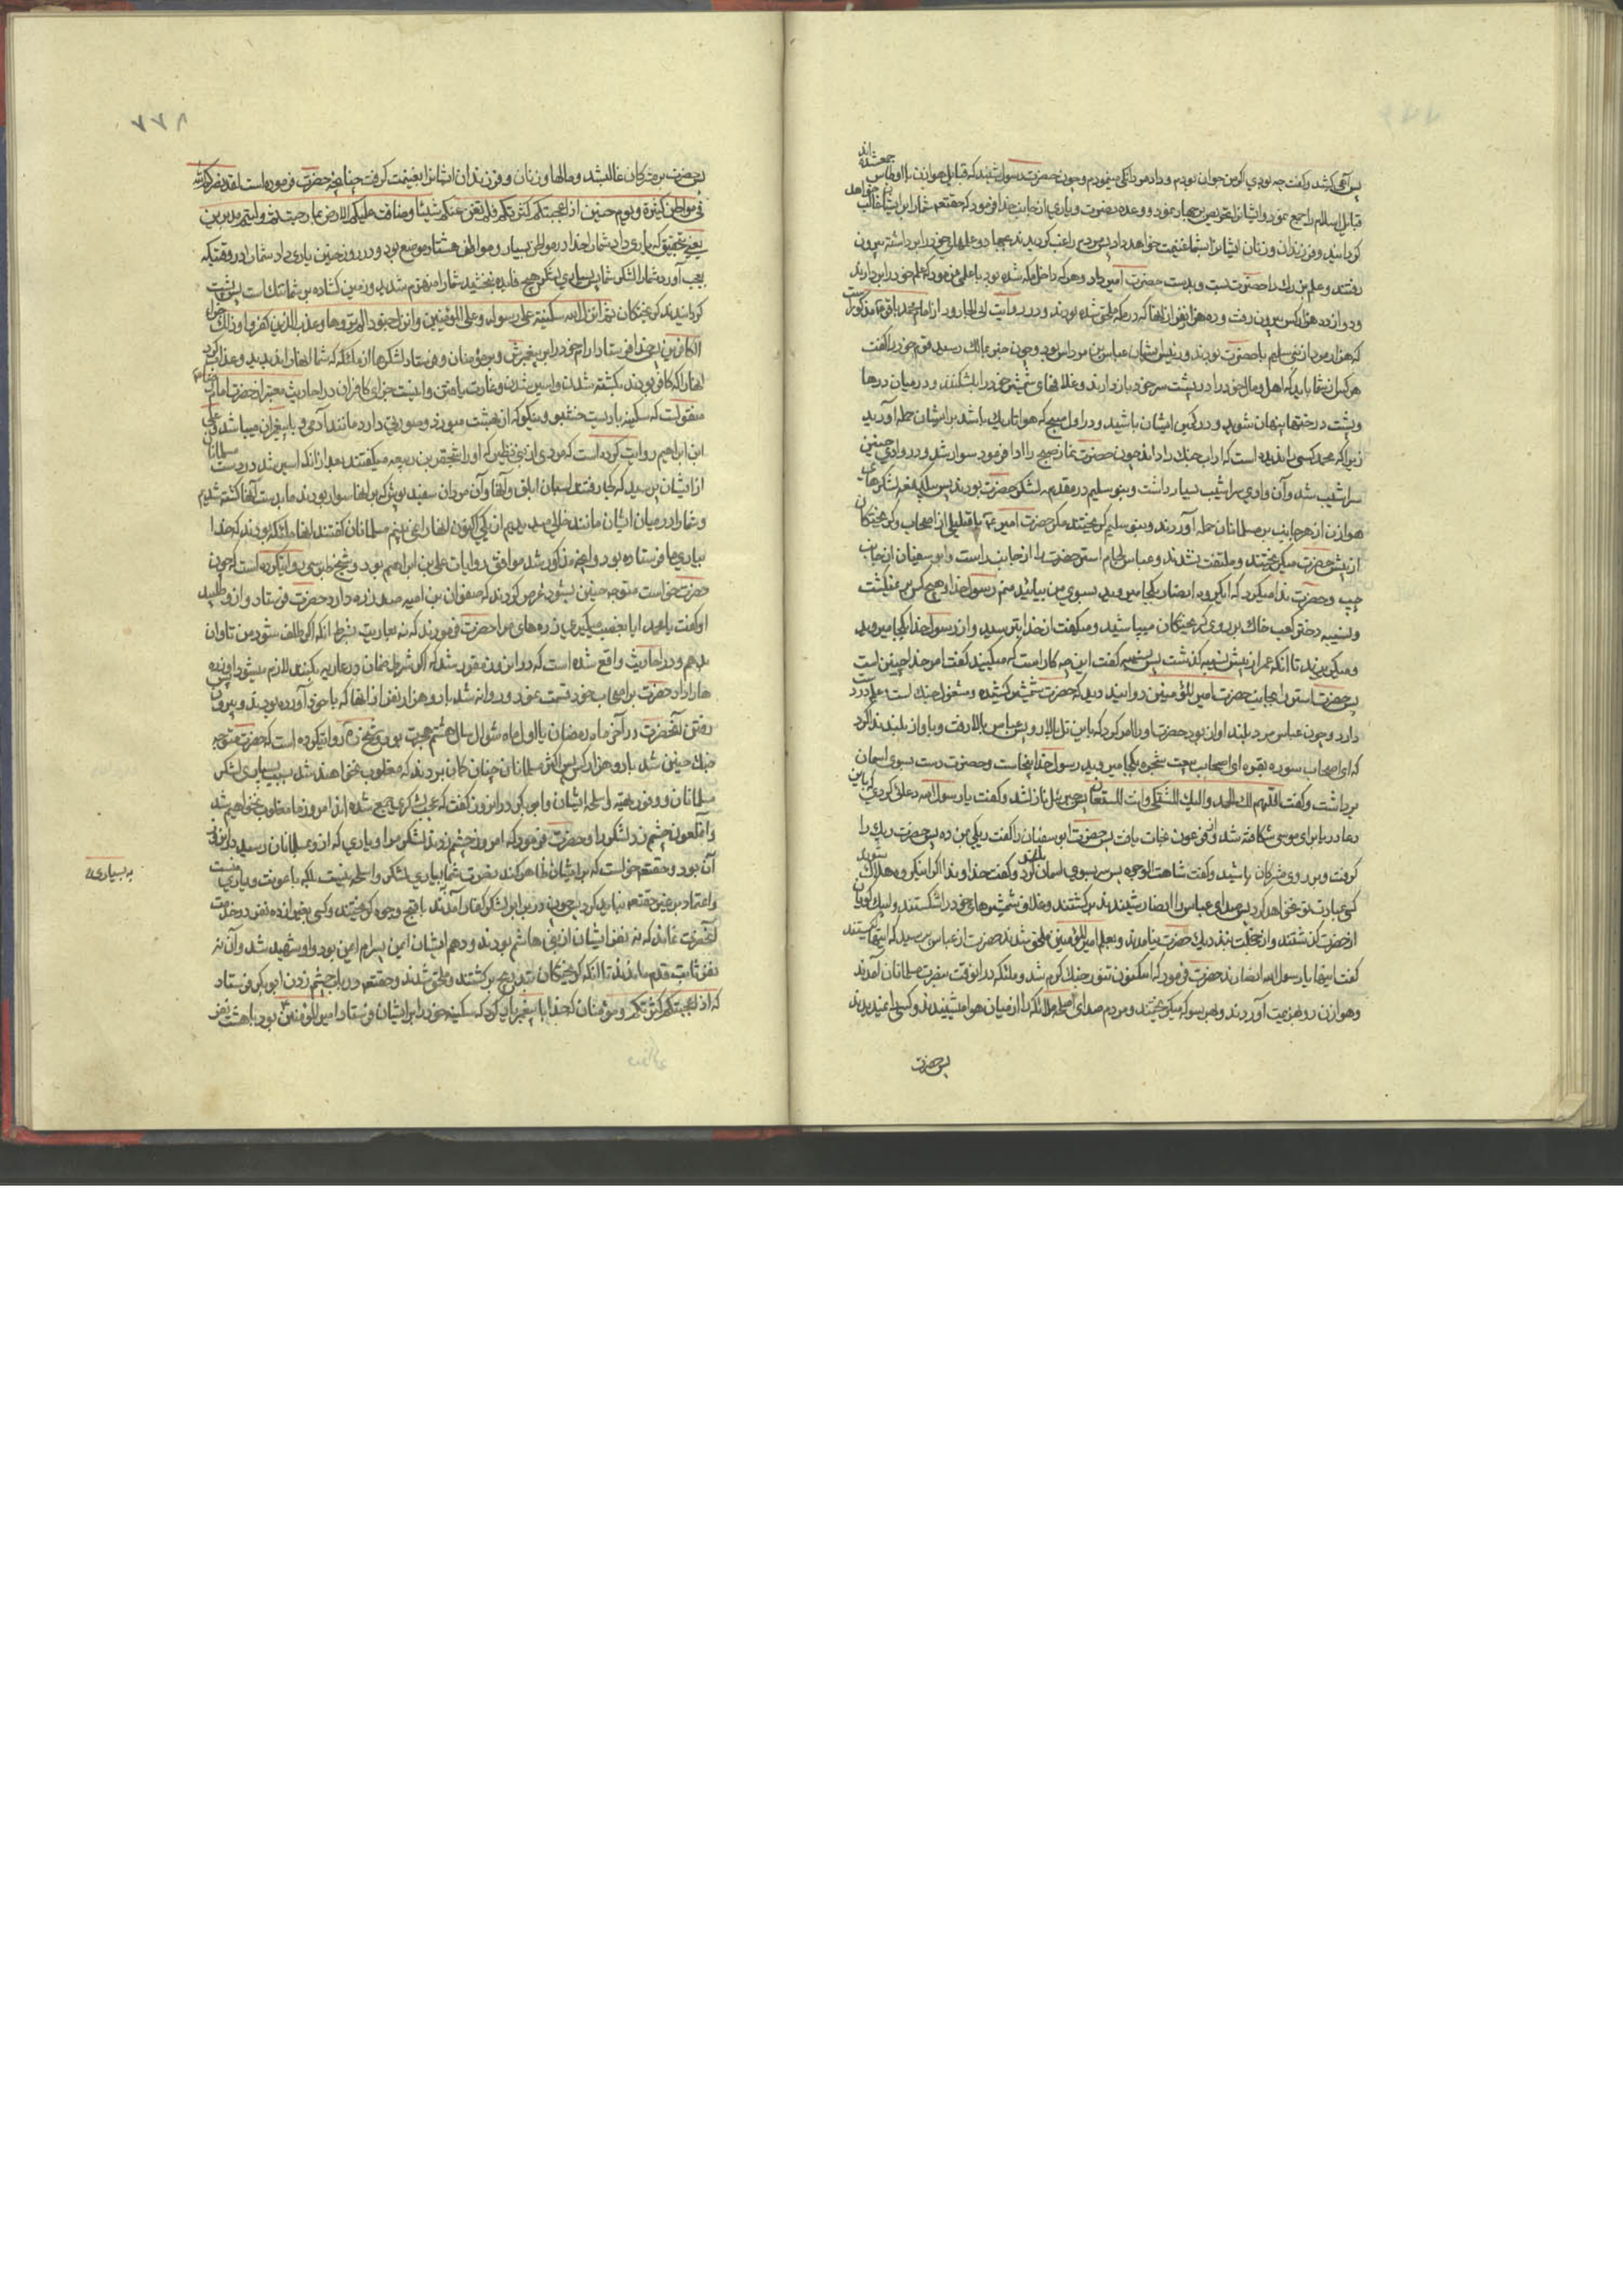 پس آهی کشید و گفت چه بودی که من جوان بودم و داد مردانگی مینمودم و چون حضرت رسول شنید که قبایل هوازن با اوطاس جمع شده اند
قبایل اسلام را جمع نمود و ایشانرا تحریص بر جهاد نمود و وعده نصرت و یاری از جانب خدا فرمود که حقتعالی شما را بر ایشان غالب خواهد
گردانید و فرزندان و زنان ایشانرا بشما غنیمت خواهد داد پس مردم راغب گردیدند بجهاد و علمهای خود را برداشته بیرون
رفتند و علم بزرك را حضرت بست و بدست حضرت امیر داد و هر که داخل مکه شده بود با علمی فرمود که علم خود را بردارند
و دوازده هزار کس بیرون رفت و ده هزار نفر از آنها که در مکه ملحق شده بودند و در روایت ابی الجارود از امام محمد باقر ع مذکور است
که هزار مرد از بنی سلیم با حضرت بودند و رئیس ایشان عباس بن مرداس بود و چون خبر بمالك رسید بقوم خود گفت
هر کس از شما باید که اهل و مال خود را در پشت سر خود باز دارند و غلافهای شمشیر خود را بشکنند و در میان درها
و پشت درختها پنهان شوید و در کمین ایشان باشید و در اول صبح که هوا تاریك باشد بر ایشان حمله آورید
زیرا که محمد کسی را ندیده است که اداب جنك را داند چون حضرت نماز صبح را ادا فرمود سوار شد و در وادی حنین
سراشیب شد و آن وادی سراشیب بسیار داشت و بنو سلیم در مقدمه لشکر حضرت بودند پس بیکدفعه لشکرهای
هوازن از هر جانب بر مسلمانان حمله آوردند و بنو سلیم گریختند مگر حضرت امیر ع با قلیلی از اصحاب و گریختگان
از پیش حضرت میگریختند و ملتفت نشدند و عباس لجام استر حضرت را از جانب راست و ابو سفیان از جانب
چپ و حضرت ندا میکرد که ای گروه انصار بکجا میروید بسوی من بیائید منم رسول خدا و هیچکس بر نمیگشت
و نسیبه دختر کعب خاك بر روی گریختگان میپاشید و میگفت از خدا بترسید و از رسول خدا بکجا میروید
و میگریزید تا انکه عمر از پیش نسیبه گذشت پس نسیبه گفت این چه کار است که میکنید گفت امر خدا چنین است
پس حضرت استر را بجانب حضرت امیر المؤمنین دوانید دید که حضرت شمشیر کشیده و مشغول جنك است و علم در دست
دارد و چون عباس مرد بلند اواز بود حضرت او را امر کرد که باین تل بالا رو پس عباس بالا رفت و باواز بلند ندا کرد
که ای اصحاب سوره بقره ای اصحاب بیعت شجره بکجا میروید رسول خدا اینجاست و حضرت دست بسوی اسمان
برداشت و گفت اللهم لك الحمد و الیك المشتکی و انت المستعان پس جبرئیل نازل شد و گفت یا رسول الله دعائی کردی که باین
دعا دریا برای موسی شکافته شد و از فرعون نجات یافت پس حضرت ابو سفیان را گفت ریکی بمن ده پس حضرت ریك را
گرفت و بر روی مشرکان پاشید و گفت شاهت الوجوه پس سر بسوی اسمان بلند کرد و گفت خداوندا اگر اینگروه هلاك شوند
کسی عبادت تو نخواهد کرد پس صدای عباس را انصار شنیدند برگشتند و غلاف شمشیرهای خود را شکستند و لبیك گویان
از حضرت گذشتند و از خجلت بنزدیك حضرت نیامدند و بعلم امیر المؤمنین ملحق شدند حضرت از عباس پرسید که اینها کیستند
گفت اینها یا رسول الله انصارند حضرت فرمود که اکنون تنور جنك گرم شد و ملئکه در انوقت بنصرت مسلمانان آمدند
و هوازن رو بهزیمت آوردند و بهر سو که میگریختند و مردم صدای اسلحه ملائکه را از میان هوا میشنیدند و کسی را نمیدیدند
پس حضرت
۸۷۷
پس حضرت بر مشرکان غالب شد و مالها و زنان و فرزندان ایشانرا بغنیمت گرفت چنانچه حضرت فرموده است لقد نصرکم الله
فی مواطن کثیرة و یوم حنین اذ اعجبتکم کثرتکم فلم تغن عنکم شیئا و ضاقت علیکم الارض بما رحبت ثم ولیتم مدبرین
یعنی بتحقیق که یاری داد شما را خدا در مواطن بسیار و مواطن هشتاد موضع بود و در روز حنین یاری داد شما را در وقتیکه
بعجب آورد شما را لشکر شما پس بسیاری لشکر هیچ فایده نبخشید شما را منهزم شدید و زمین گشاده بر شما تنك است پس پشت
گردانیدید گریختگان ثم انزل الله سکینته علی رسوله و علی المؤمنین و انزل جنودا لم تروها و عذب الذین کفروا و ذلك جزاء
الکافرین پس خدا فرستاد ارام خود را بر پیغمبرش و بر مؤمنان و فرستاد لشکرها از ملئکه که شما انها را ندیدید و عذاب کرد
انها را که کافر بودند بکشته شدن و اسیر شدن و غارت یافتن و اینست جزای کافران در احادیث معتبر از حضرت امام رضا ع
منقولست که سکینه بادیست خوشبو و نیکو که از بهشت میوزد و صورتی دارد مانند آدمی و با پیغمبران میباشد علی
ابن ابراهیم روایت کرده است که مردی از بنی نظیر که او را شجره بن ربیعه میگفتند بعد از انکه اسیر شد در دست مسلمانان
از ایشان پرسید که کجا رفتند اسبان ابلق و آنها و آن مردان سفید پوش که بر انها سوار بودند ما بدست آنها کشته شدیم
و شما را در میان ایشان مانند خالی میدیدیم از یکی اکنون انها را نمی بینم مسلمانان گفتند انها ملئکه بودند که خدا
بیاری ما فرستاده بود و انچه مذکور شد موافق روایات علی بن ابراهیم بود و شیخ طبرسی روایتکرده است که چون
حضرت خواست متوجه حنین بشود عرض کردند که صفوان بن امیه صد زره دارد حضرت فرستاد و از او طلبید
او گفت یا محمد ایا بغصب میگیری زره های مرا حضرت فرمودند که نه بعاریت بشرط انکه اگر تلف شود من تاوان
بدهم و در احادیث واقع شده است که در ان روز مقرر شد که اگر شرط ضمان در عاریه بکنند لازم میشود پس زره
ها را داد حضرت بر اصحاب خود قسمت نمود و روانه شد با دو هزار نفر از انها که با خود آورده بودند و بیرون
رفتن آنحضرت در آخر ماه رمضان یا اول ماه شوال سال هشتم هجرت بود و شیخ روایتکرده است که حضرت متوجه
جنك حنین شد با ده هزار کس پس اکثر مسلمانان چنان گمان بردند که مغلوب نخواهند شد بسبب بسیاری لشکر
مسلمانان و وفور تهیه و اسلحه ایشان و ابو بکر در انروز گفت که عجب لشکری جمع شده اند امروز ما مغلوب نخواهیم شد
و آنملعون چشم زد لشکر را و حضرت فرمود که امروز چشم زدند لشکر مرا و یاری که از و بمسلمانان رسید در انروز
آن بود و حقتعالی خواست که بر ایشان ظاهر کند نصرت شما بیاری لشکر و اسلحه نیست بلکه بعون و یاری
و اعتماد بر غیر حقتعالی نباید کرد پس چون در برابر لشکر کفار آمدند باقبح وجوه گریختند و کسی بغیر از ده نفر در خدمت
آنحضرت نماند که نه نفر ایشان از بنی هاشم بودند و دهم ایشان ایمن پسر ام ایمن بود و او شهید شد و آن نه
نفر ثابت قدم ماندند تا انکه گریختگان بتدریج برگشتند و ملحق شدند و حقتعالی در باب چشم زدن ابو بکر فرستاد
که اذ اعجبتکم کثرتکم و مؤمنان که خدا با پیغمبر یاد کرد که سکینه خود را بر ایشان فرستاد امیر المؤمنین بود با هشت نفر
به بسیاری